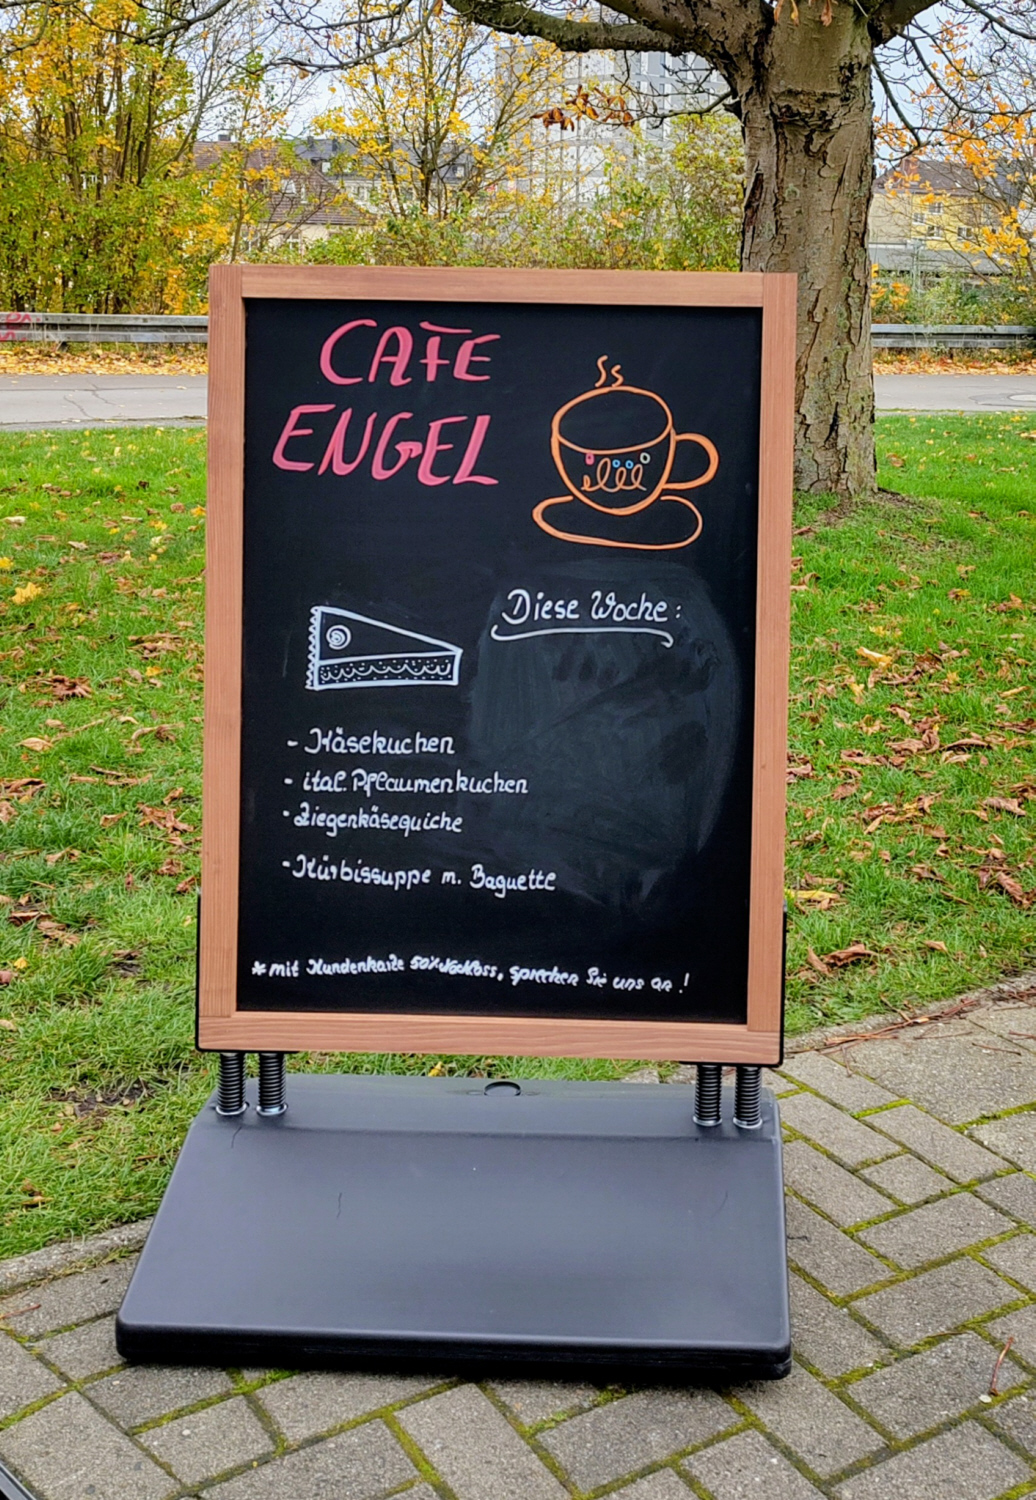 CAFE
ENGEL
Diese Woche:
- Käsekuchen
- ital. Pflaumenkuchen
- Ziegenkäsequiche
- Kürbissuppe m. Baguette
* mit Kundenkarte 50% Nachlass, sprechen Sie uns an!